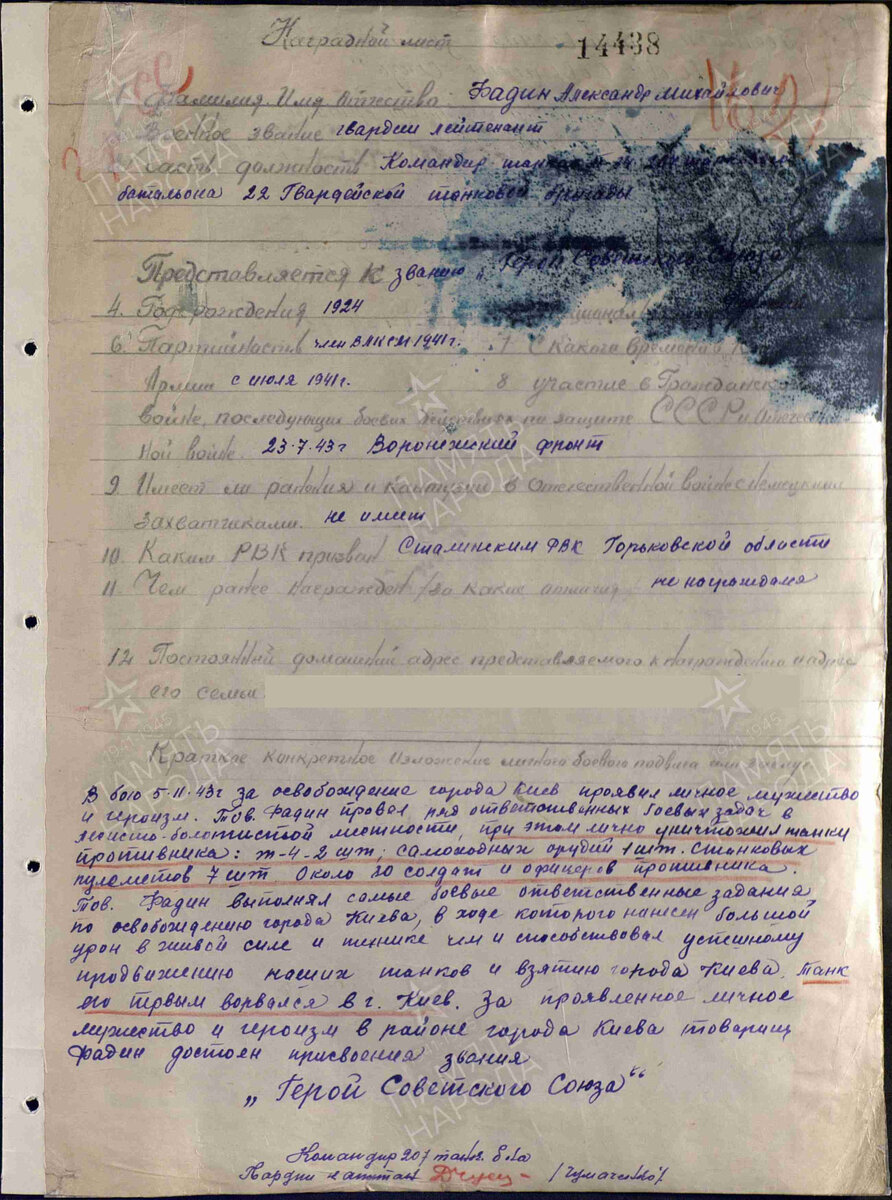 Наградной лист 14438
Фамилия Имя Отчество Фадин Александр Михайлович
Военное звание гвардии лейтенант
Часть должность Командир танка
батальона 22 Гвардейской танковой бригады
Представляется к званию „Герой Советского Союза
4. Год рождения 1924
6. Партийность член ВЛКСМ 1941г. 7 С какого времени в
Армии с июля 1941г. 8 участие в Гражданской
войне, последующих боевых действиях по защите СССР и отечествен
ной войне 23.7.43г Воронежский фронт
9 Имеет ли ранения и контузии в отечественной войне с немецкими
захватчиками. не имеет
10. Каким РВК призван Сталинским РВК Горьковской области
11. Чем ранее награжден /за какие отличия не награждался
12 Постоянный домашний адрес представляемого к награждению и адрес
его семьи
Краткое конкретное изложение личного боевого подвига или заслуг
В бою 5-11-43г за освобождение города Киев проявил личное мужество
и героизм. Тов. Фадин провел ряд ответственных боевых задач в
лесисто-болотистой местности, при этом лично уничтожил танки
противника: Т-4-2 шт, самоходных орудий 1 шт. станковых
пулеметов 7 шт Около 30 солдат и офицеров противника.
Тов. Фадин выполнял самые боевые ответственные задания
по освобождению города Киева, в ходе которого нанесен большой
урон в живой силе и технике чем и способствовал успешному
продвижению наших танков и взятию города Киева. Танк
его первым ворвался в г. Киев. За проявленное личное
мужество и героизм в районе города Киева товарищ
Фадин достоин присвоения звания
„Герой Советского Союза“
Командир 207 танк. б-на
Гвардии капитан /Чумаченко/
ПАМЯТЬ
НАРОДА
1941-1945
ПАМЯТЬ
НАРОДА